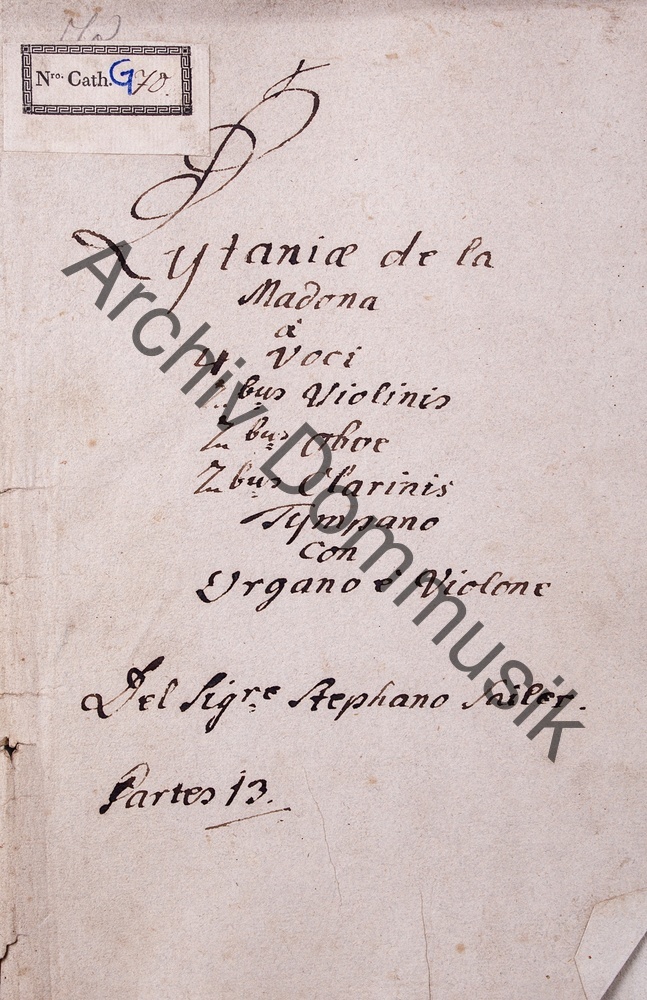 Nro. Cath. G 70.
Lytaniæ de la
Madona
à
4 Voci
2bus Violinis
2bus Oboe
2bus Clarinis
Tympano
con
Organo è Violone
Del Sigre Stephano Sailer.
Partes 13.
Archiv Dommusik